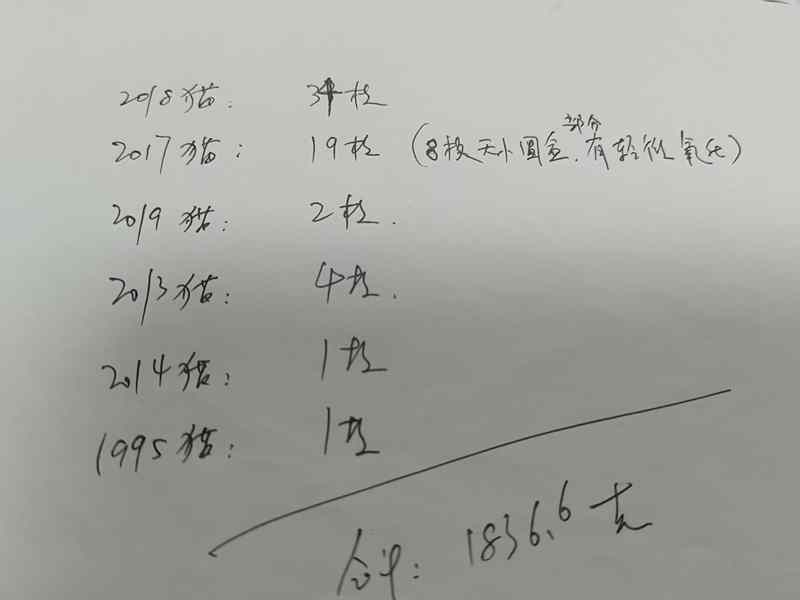 2018猫: 34枚
2017猫: 19枚 (8枚无小圆盒.部分有轻微氧化)
2019猫: 2枚.
2013猫: 4枚.
2014猫: 1枚
1995猫: 1枚
合计: 1836.6克